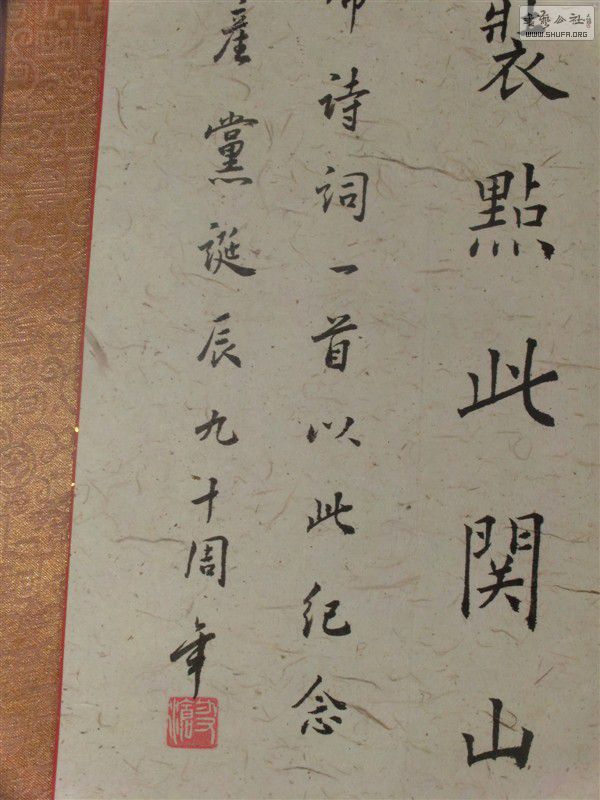 裝點此関山
席诗词一首以此纪念
產黨誕辰九十周年
書藝公社
WWW.SHUFA.ORG